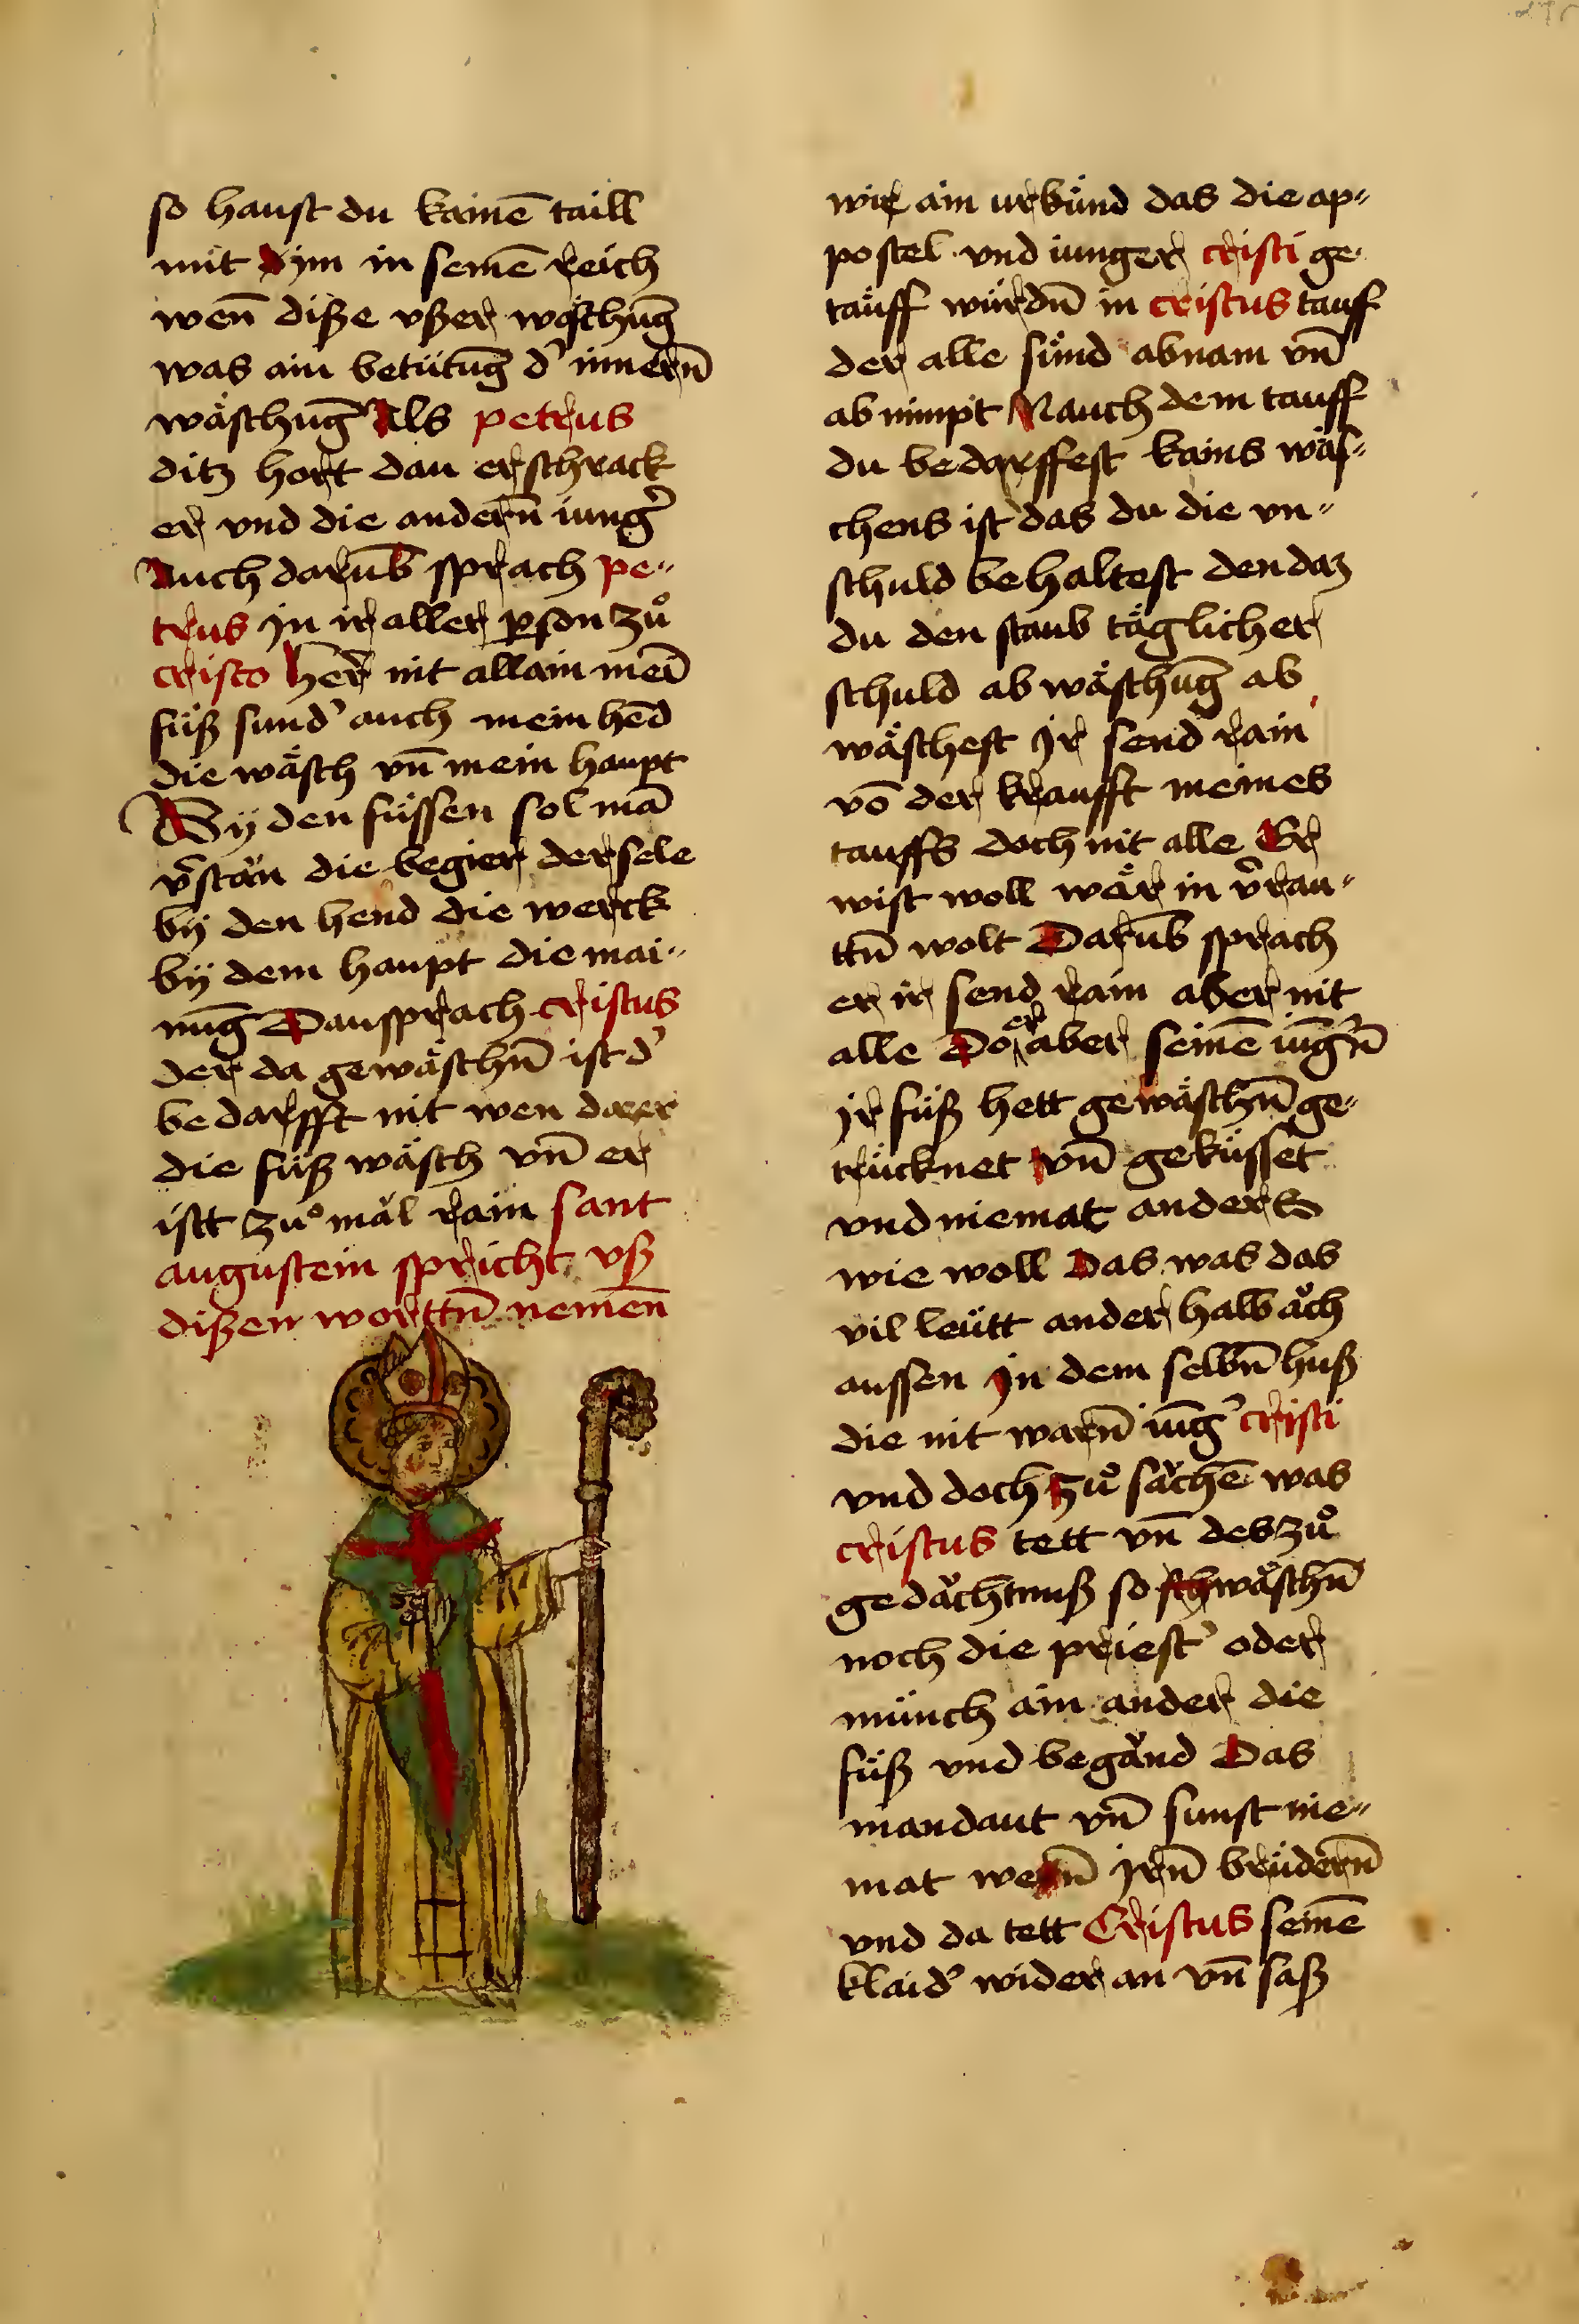 so haust du kainē taill
mit Dim in seinē reich
wen̄ diße vßer wäschūg
was ain betütūg d' innern̄
wäschūg Als petrus
ditz hort dau erschrack
er vnd die andern̄ iung'
Auch darūb sprach pe„
trus in ir aller pson zů
cristo her̄ nit allain mei̅
füß sund' auch mein hēd
die wäsch vn̄ mein haupt
By den füssen sol mā
v̄stän die begier der sele
bÿ den hend die werck
bÿ dem haupt die mai„
nūg Dau sprach cristus
der da gewäschn̄ ist d'
bedarfft nit wen daer
die füß wäsch vn̄ er
istt zů mäl rain sant
augustein spricht vß
dißen worttn̄ nemen̄
wir ain urkünd das die ap„
postel vnd iunger cristi ge„
täuff würdn̄ in cristus tauff
der alle sünd abnam vn̄
ab nimpt Nauch dem tauff
du bedarffest kains wäs„
chens ist das du die vn„
schuld behaltest den daz
du den staub täglicher
schuld ab wäschūg ab
wäschest Ir send rain
vō der kraufft meines
tauffs doch nit alle Er
wist woll wär in v̄rau„
ttn̄ wolt Darūb sprach
er ir send rain aber nit
alle Do er aber seinē iūg'n̄
ir füß hett gewäschn̄ ge„
trücknet vn̄ geküsset
vnd niemat anders
wie woll Das was das
vil leütt ander halb äch
aussen in dem selbn̄ huß
die nit warn̄ iūg' cristi
vnd doch zů sächē was
cristus tett vn̄ des zů
gedächtnuß so wäschn̄
noch die priest' oder
münch ain ander die
füß vnd begänd Das
mandaut vn̄ sunst nie„
mat wen̄ irn̄ brüdern̄
vnd da tett Cristus seinē
klaid' wider an vn̄ saß